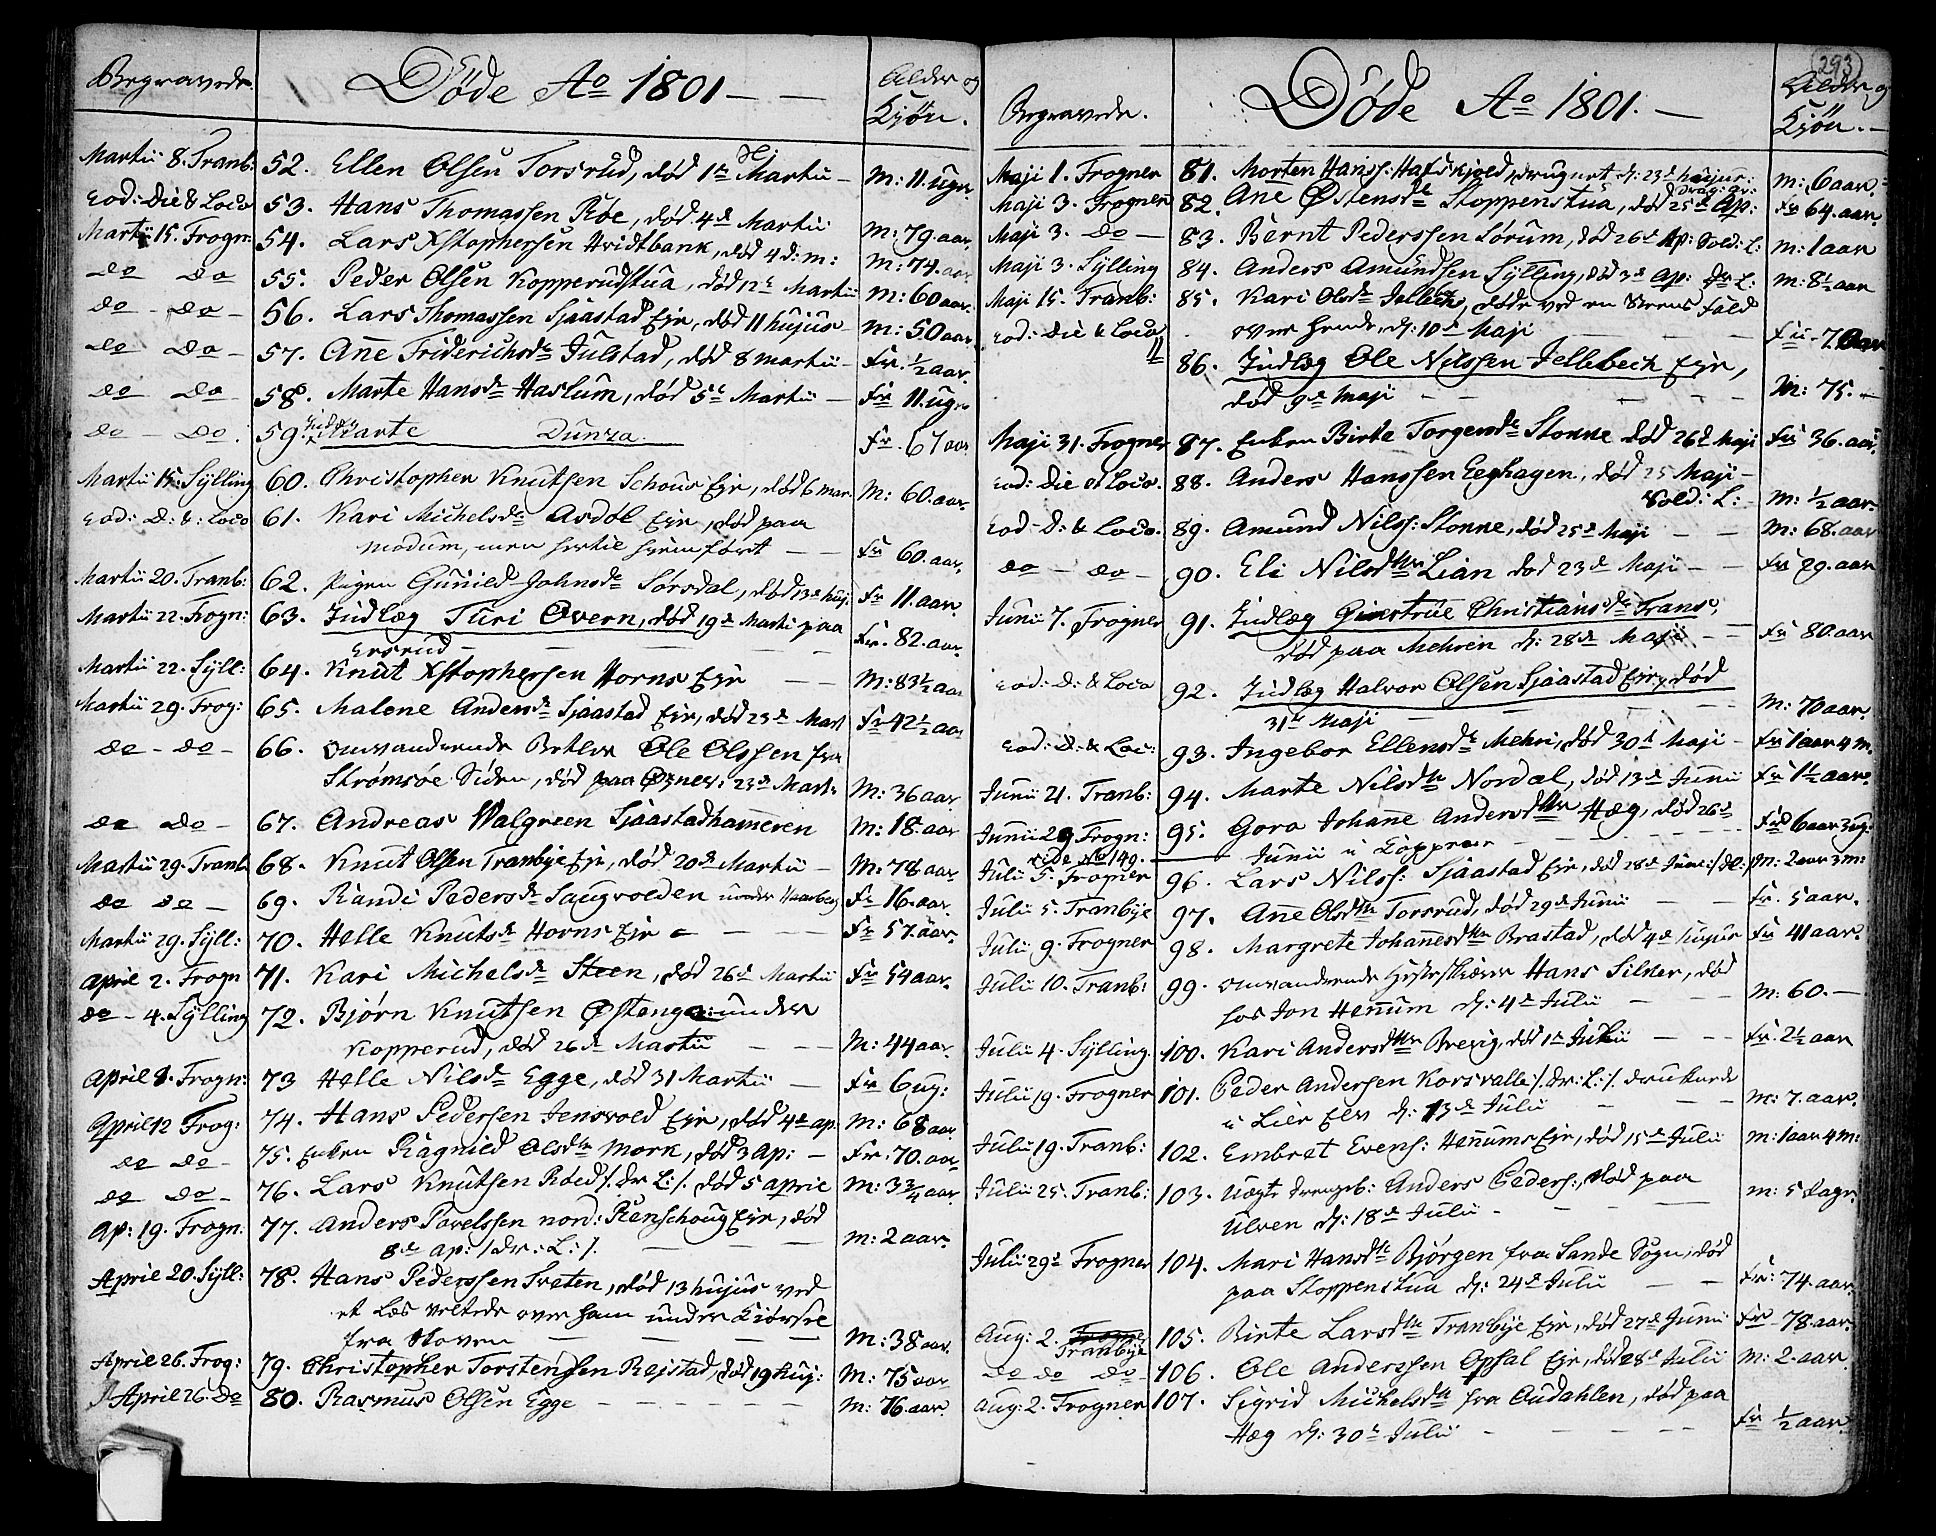 Begravede. Döde Ao 1801 Alder og Kjön.
Martii 8. Tranb: 52. Ellen Olsen Torsrud, död 1te Martii - M: 11. ugr.
eod: die & Loco 53. Hans Thomassen Röe, död 4d Martii M: 79. aar
Martii 15. Frogn: 54. Lars Xstophersen Hvidtbank, död 4d: m: M: 74. aar
do do 55. Peder Olsen Kopperudstua, död 12te Martii M: 60 aar.
do - do - 56. Lars Thomassen Sjaastad Eje, död 11 hujus - M: 50 aar
do do - 57. Ane Friderichsdr Julstad, död 8 Martii - Fr. ½ aar.
do do 58. Marte Hansdr Haslum, död 5te Martii - Fr 11. ugr
do - do. 59. Indlæg Marte Dunza. Fr. 67 aar
Martii 15. Sylling 60. Christopher Knutsen Schous Eje, död 6 mar. M: 60. aar.
eod: D: & : Loco 61. Kari Michelsdr Asdöl Eje, död paa
Modum, men hertil hjemfört - - Fr 60. aar.
Martii 20. Tranb: 62. Pigen Gunild Johnsdr Sörsdal, död 13de huj: Fr 11. aar
Martii 22. Frogn: 63. Indlæg Turi Overn, död 19d Marti paa
Ersrud - - - Fr. 82. aar.
Martii 22. Syll: 64. Knut Xstophersen Horns Eje - - M: 83½ aar
Martii 29. Frog: 65. Malene Andersdr Sjaastad Eje, död 23d Mart Fr 42½ aar
do - do - 66. Omvandrende Betler Ole Olssen fra
Strömsöe Siden, död paa Øgner: 23d Mart: M: 36 aar
do do - 67. Andreas Walgreen Sjaastadhameren M: 18. aar
Martii 29. Tranb 68. Knut Olsen Tranbye Eje, död 20de Martii - M: 78 aar.
do do - 69. Randi Pedersdr Saugvolden under Haarberg Fr 16. aar.
Martii 29. Syll: 70. Helle Knutsdr Horns Eje - - - Fr 57. aar.
April 2. Frogn 71. Kari Michelsdr Steen, död 26d Martii Fr 54 aar.
do - 4. Sylling 72. Björn Knutsen Østenge: under
Kopperud, död 26d Martii - - M: 44 aar.
April 8. Frogn: 73 Helle Nilsdr Egge, död 31 Martii - Fr 6 ug:
April 12 Frog: 74. Hans Pedersen Jensvold Eje, död 4de ap. M: 68 aar.
do do - 75. Enken Ragnild Olsdr Mork, död 3 Ap: - Fr: 70. aar
do do - 76. Lars Knutsen Röed /: dr L: /. död 5 aprie M: 3¾ aar
Ap: 19. Frogn: 77. Anders Pavelssen nord: Renschoug Eje, död
8de ap: / dr: L: /. - - - M: 2 aar.
Aprie 20. Syll: 78. Hans Pederssen Sreten, död 13 hujus ved
et Læs veltede over ham under Kiörsel
fra Skoven - - - - M: 38 aar.
Aprie 26. Frog: 79. Christopher Torstensen Rejstad, död 19 huj: M: 75 aar
April 26. do 80. Rasmus Olsen Egge - - - M: 76. aar.
293
Begravede. Döde Ao 1801. - Alder og Kjön. -
Maji 1. Frogner 81. Morten Hanss: Hafskjold, drugnet d: 23d hujus: M: 6 aar.
Maji 3. Frogner 82. Ane Østensdr Stoppenstua, död 25d Ap: Fr 64. aar
Maji 3. do - 83. Bernt Pederssen Sörum, död 26d Ap: Sold: L: M: 1 aar
Maji 3. Sylling 84. Anders Amundsen Sylling, död 3d Ap: dr L: M: 8½ aar
Maji 15. Tranb: 85. Kari Olsdr Jellebek, döde ved en Steens Fald
eod: Die & Loco over hende, d: 10d Maji - - Fr - 70 aar
86. Indlæg Ole Nilssen Jellebeck Eje,
död 9d Maji - - - M: 75. -
Maji 31. Frogner 87. Enken Birte Torgersdr Stonne död 26d Maji Fr 36. aar.
eod: Die et Loco. 88. Anders Hanssen Eeghagen, död 25 Maji -
Sold: L: - M: ½ aar.
eod - D: & Loco. 89. Amund Nilss: Stonne, död 25d Maji - - M: 68. aar
do - do - 90. Eli Nilsdtr Lian död 23d Maji - - Fr 29. aar
Junii 7. Frogner 91. Indlæg Ginstrue Christiansdr Frans,
död paa Mehren d: 28de Maji - - Fr 80. aar
eod: D: & Loco 92. Indlæg Halvor Olsen Sjaastad Eje, död
31te Maji - - - M: 70 aar.
eod: D: & Loc: 93. Ingebor Ellensdr Mehri, död 30d Maji - Fr 1 aar 4 m.
Junii 21. Tranb: 94. Marte Nilsdtr Nordal, död 13d Junii Fr 1½ aar.
Junii 29. Frogn: 95. Goro Johane Andersdtr Hæg, död 26d
vide No 149. Junii i Kopper - - Fr 6 aar 3 ug:
Julii 5. Frogner 96. Lars Nilss: Sjaastad Eje, död 28d Juni: / dL: / M: 2 aar 3 m:
Julii 5. Tranbye 97. Ane Olsdtr Torsrud, död 29d Junii - - Fr. 5 aar.
Julii 9. Frogner 98. Margrete Johanesdtr Brastad, död 4d hujus Fr 41 aar.
Julii 10. Tranb: 99. Omvandrende Hesteskiærer Hans Silver, död
hos Jon Henum d: 4d Julii - - M: 60. -
Julii 4. Sylling. 100. Kari Andersdtr Brevig, död 1te Julii - - Fr. 2½ aar
Julii 19. Frogner 101. Peder Andersen Korsvalle /: dr: L: /. druknede
i Lier Elv d: 13d Julii - - M: 7. aar.
Julii 19. Tranb: 102. Embret Evens: Henums Eje, död 15d Julii M: 1 aar 4 m:
Julii 25. Tranb: 103. Uægte drengeb: Anders Peders:, död paa
Ulven d: 18d Julii - - M: 5 dage.
Julii 29d Frogner 104. Mari Hansdr Björgen fra Sande Sogn, död
paa Stoppenstua d: 24d Julii - - Fr: 74. aar.
Aug: 2. Tranbye 105. Birte Larsdtr Tranbye Eje, död 27d Junii Fr - 78. aar.
do do do - 106. Ole Anderssen Opsal Eje, död 28d Julii M: 2. aar.
Aug: 2. Frogner 107. Sigrid Michelsdtr fra Audahlen, död paa
Hæg d: 30d Julii - - - Fr ½ aar.